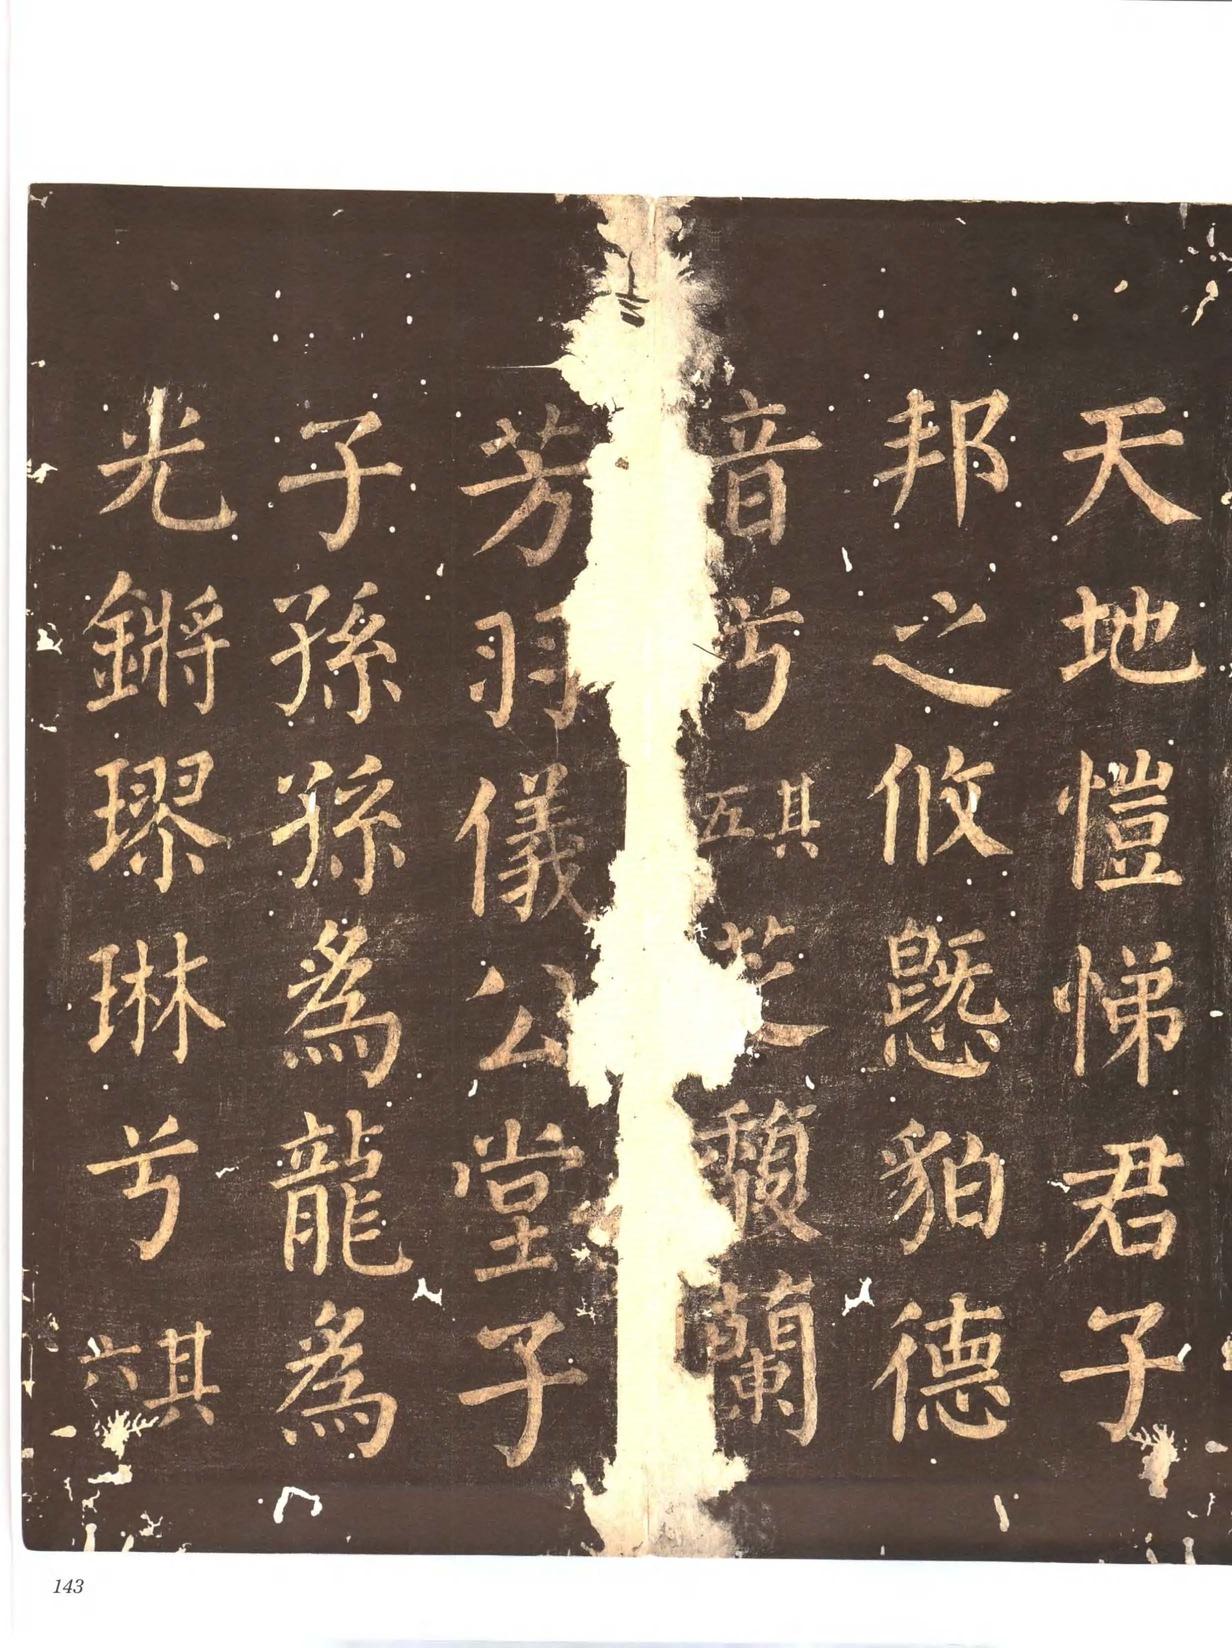 天地愷悌君子
邦之攸貊德
音兮其五芝馥蘭
芳羽儀公堂子
子孫孫為龍為
光鏘璆琳兮其六
143